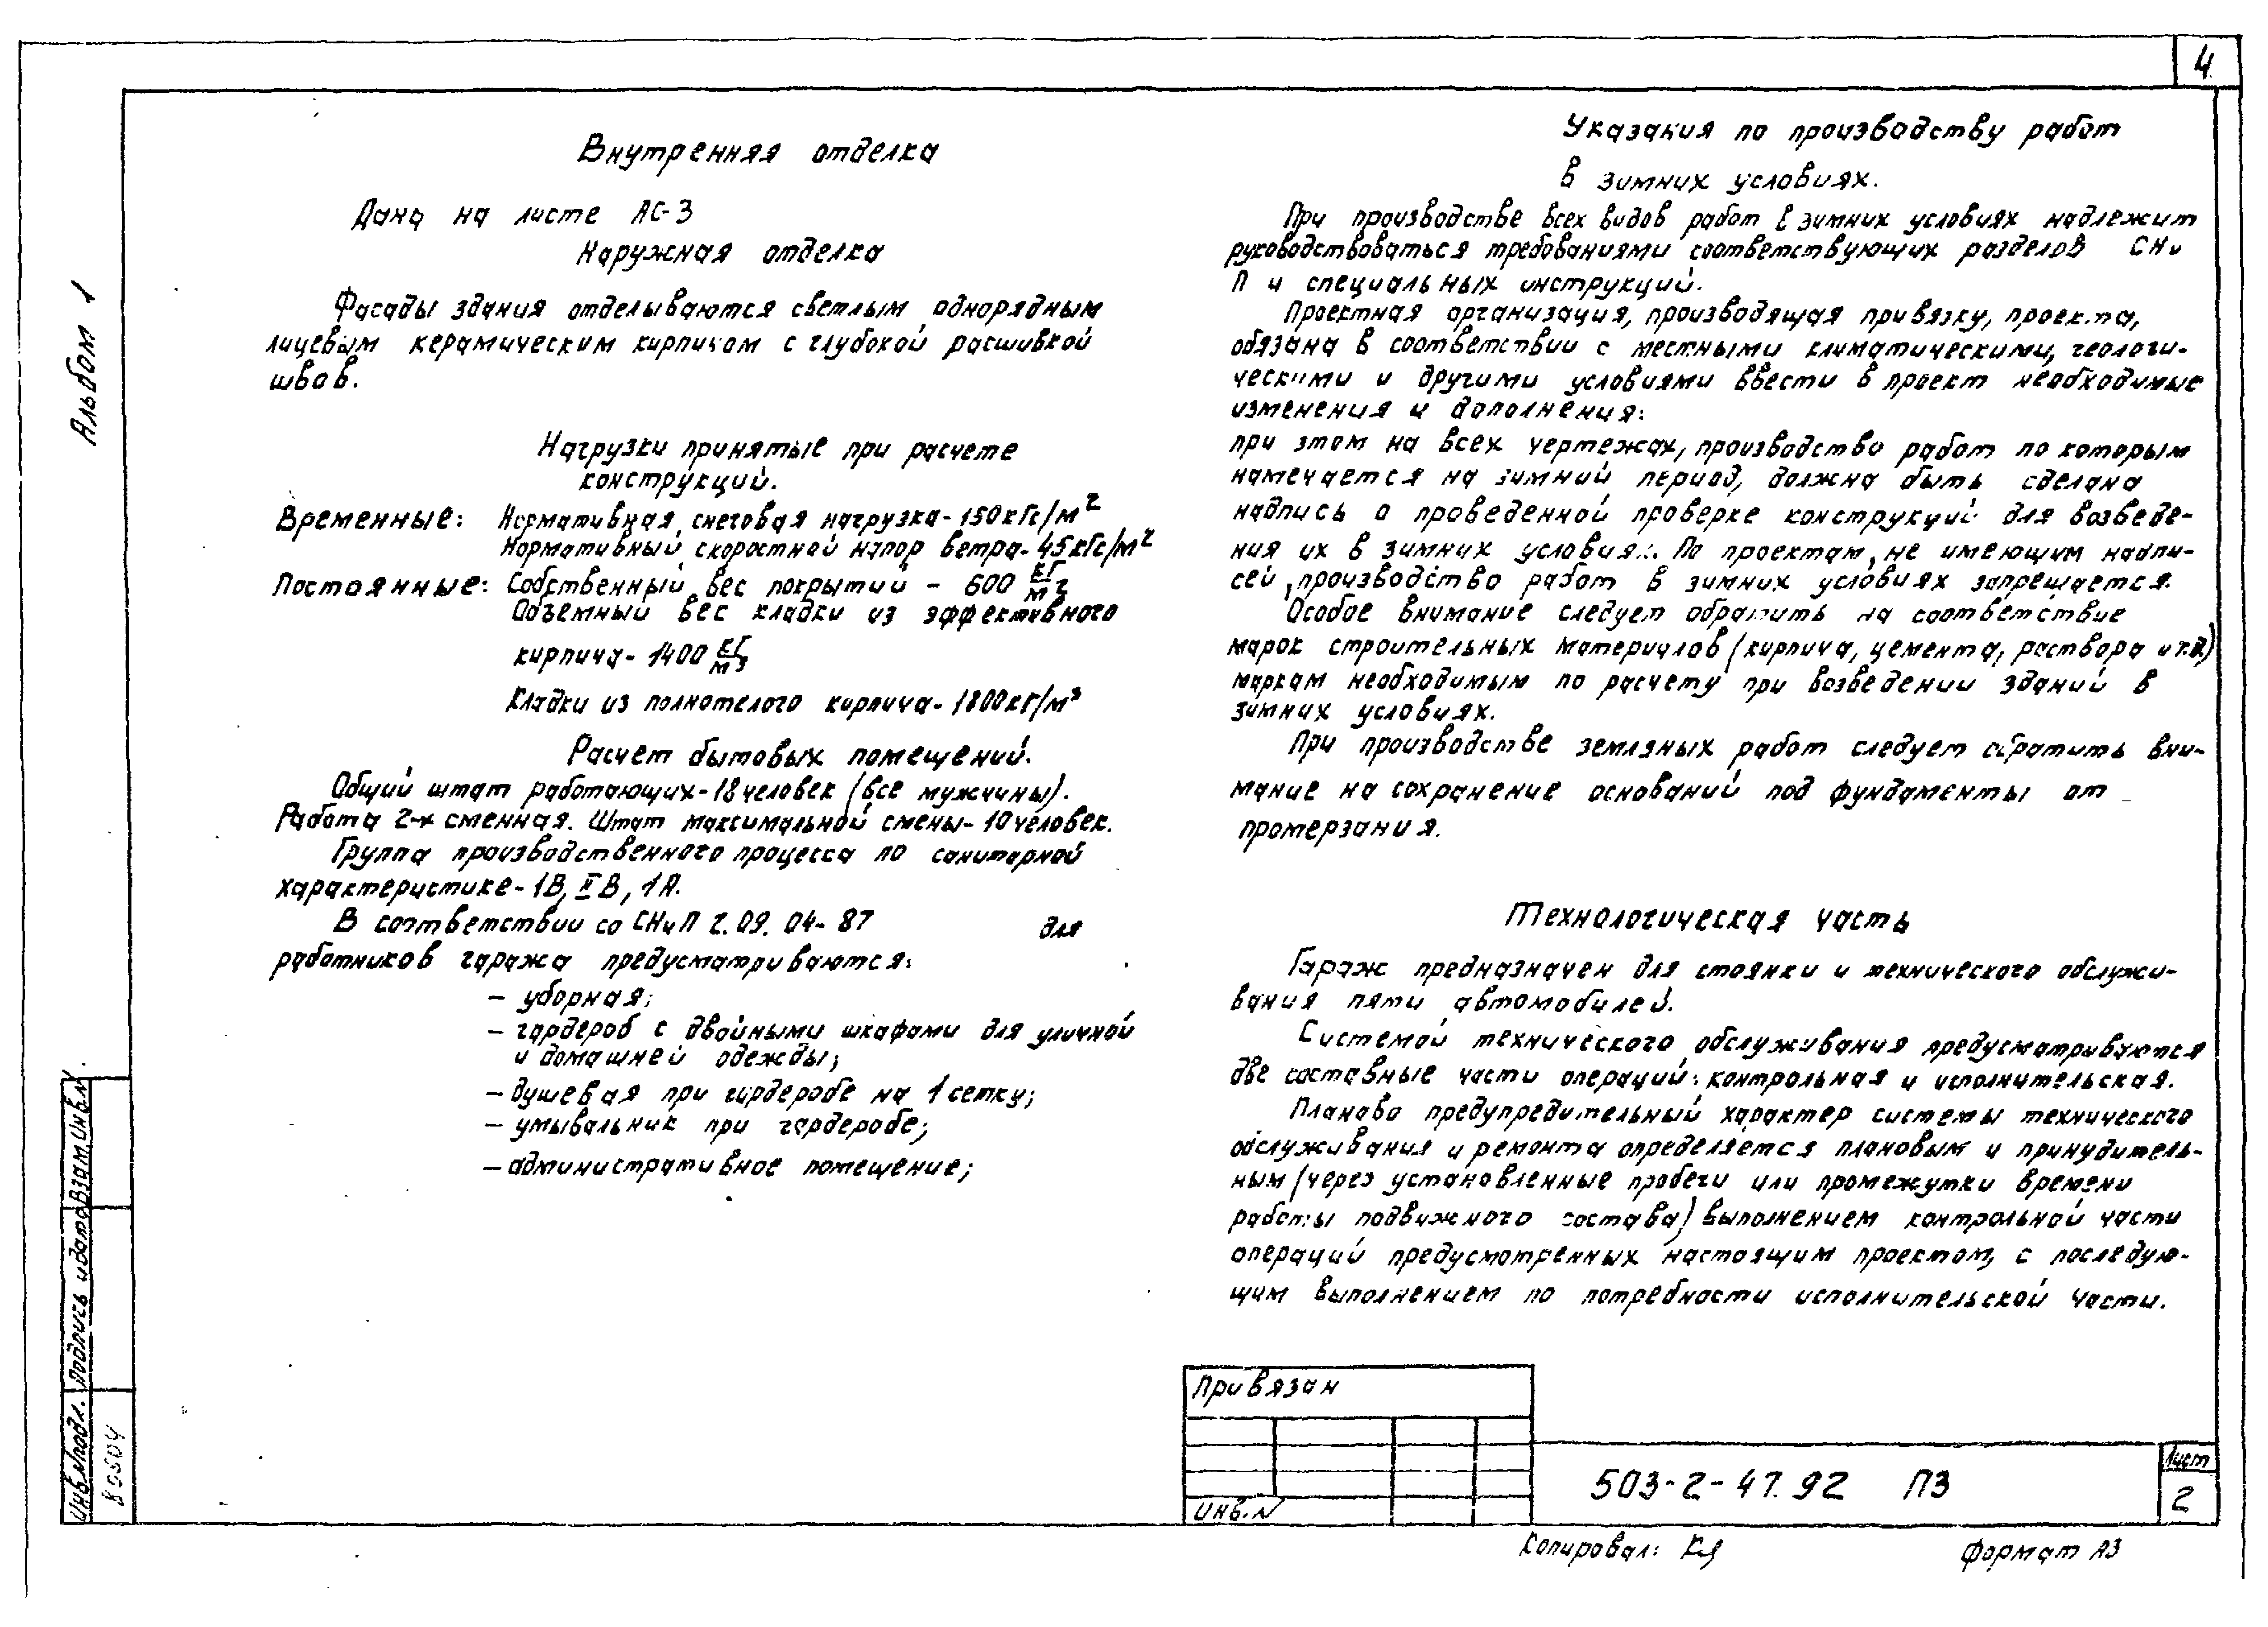 4
Альбом 1
Внутренняя отделка
Дана на листе АС-3
Наружная отделка
Фасады здания отделываются светлым однорядным
лицевым керамическим кирпичом с глубокой расшивкой
швов.
Нагрузки принятые при расчете
конструкций.
Временные: Нормативная снеговая нагрузка-150кГс/м²
Нормативный скоростной напор ветра-45кГс/м²
Постоянные: Собственный вес покрытий - 600 кг/м²
Объемный вес кладки из эффективного
кирпича-1400 кг/м3
Кладки из полнотелого кирпича-1800кг/м³
Расчет бытовых помещений.
Общий штат работающих-18человек (все мужчины).
Работа 2-х сменная. Штат максимальной смены-10человек.
Группа производственного процесса по санитарной
характеристике-1В, IIВ, 1А.
В соответствии со СНиП 2.09.04-87 для
работников гаража предусматриваются:
- уборная;
- гардероб с двойными шкафами для уличной
и домашней одежды;
- душевая при гардеробе на 1 сетку;
- умывальник при гардеробе;
- административное помещение;
Указания по производству работ
в зимних условиях.
При производстве всех видов работ в зимних условиях надлежит
руководствоваться требованиями соответствующих разделов СНи
П и специальных инструкций.
Проектная организация, производящая привязку, проекта,
обязана в соответствии с местными климатическими, геологи-
ческими и другими условиями ввести в проект необходимые
изменения и дополнения:
при этом на всех чертежах, производство работ по которым
намечается на зимний период, должна быть сделана
надпись о проведенной проверке конструкций для возведе-
ния их в зимних условиях. По проектам, не имеющим надпи-
сей, производство работ в зимних условиях запрещается.
Особое внимание следует обратить на соответствие
марок строительных материалов (кирпича, цемента, раствора и т.д.)
маркам необходимым по расчету при возведении зданий в
зимних условиях.
При производстве земляных работ следует обратить вни-
мание на сохранение оснований под фундаменты от
промерзания.
Технологическая часть
Гараж предназначен для стоянки и технического обслужи-
вания пяти автомобилей.
Системой технического обслуживания предусматриваются
две составные части операций: контрольная и исполнительская.
Планово предупредительный характер системы технического
обслуживания и ремонта определяется плановым и принудитель-
ным (через установленные пробеги или промежутки времени
работы подвижного состава) выполнением контрольной части
операций предусмотренных настоящим проектом, с последую-
щим выполнением по потребности исполнительской части.
Привязан
Инв.N
503-2-47.92 ПЗ
Лист
2
Копировал:
Формат А3
Инв.Nподл.
Подпись и дата
Взам.Инв.N